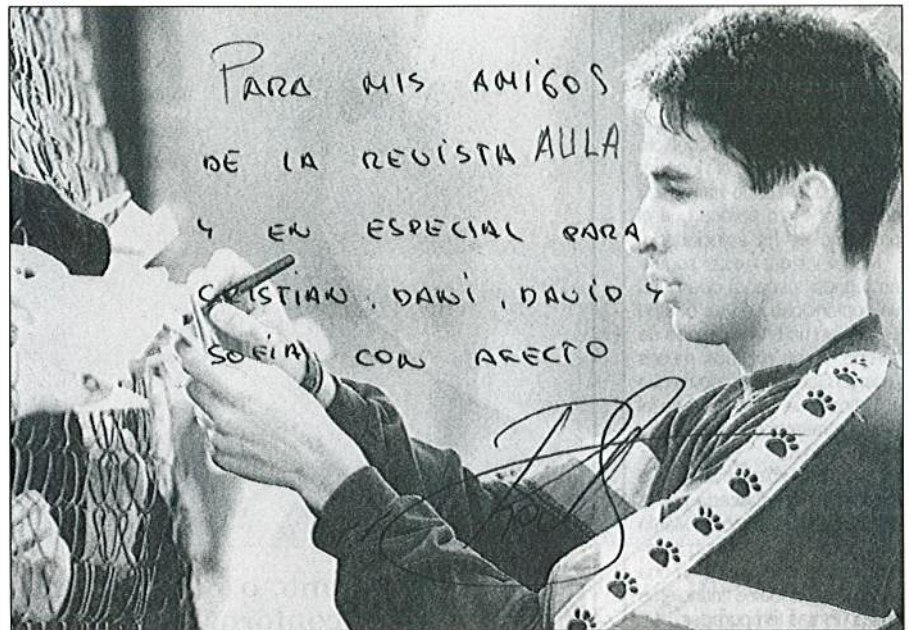 PARA MIS AMIGOS
DE LA REVISTA AULA
Y EN ESPECIAL PARA
CRISTIAN, DANI, DAVID Y
SOFIA, CON AFECTO